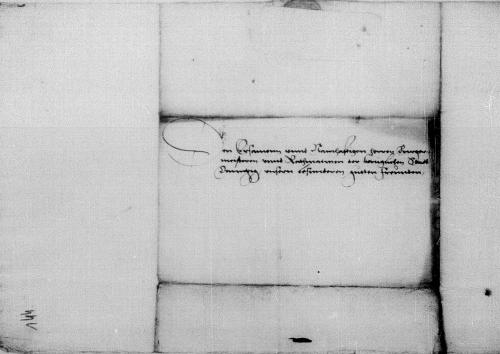 Den Ersamenn unnd Namhafftigen herren Burger-
meisteren unnd Rathmannen der koniglichen Stadt
Danntzig unsern besonderen gutten freunden
144